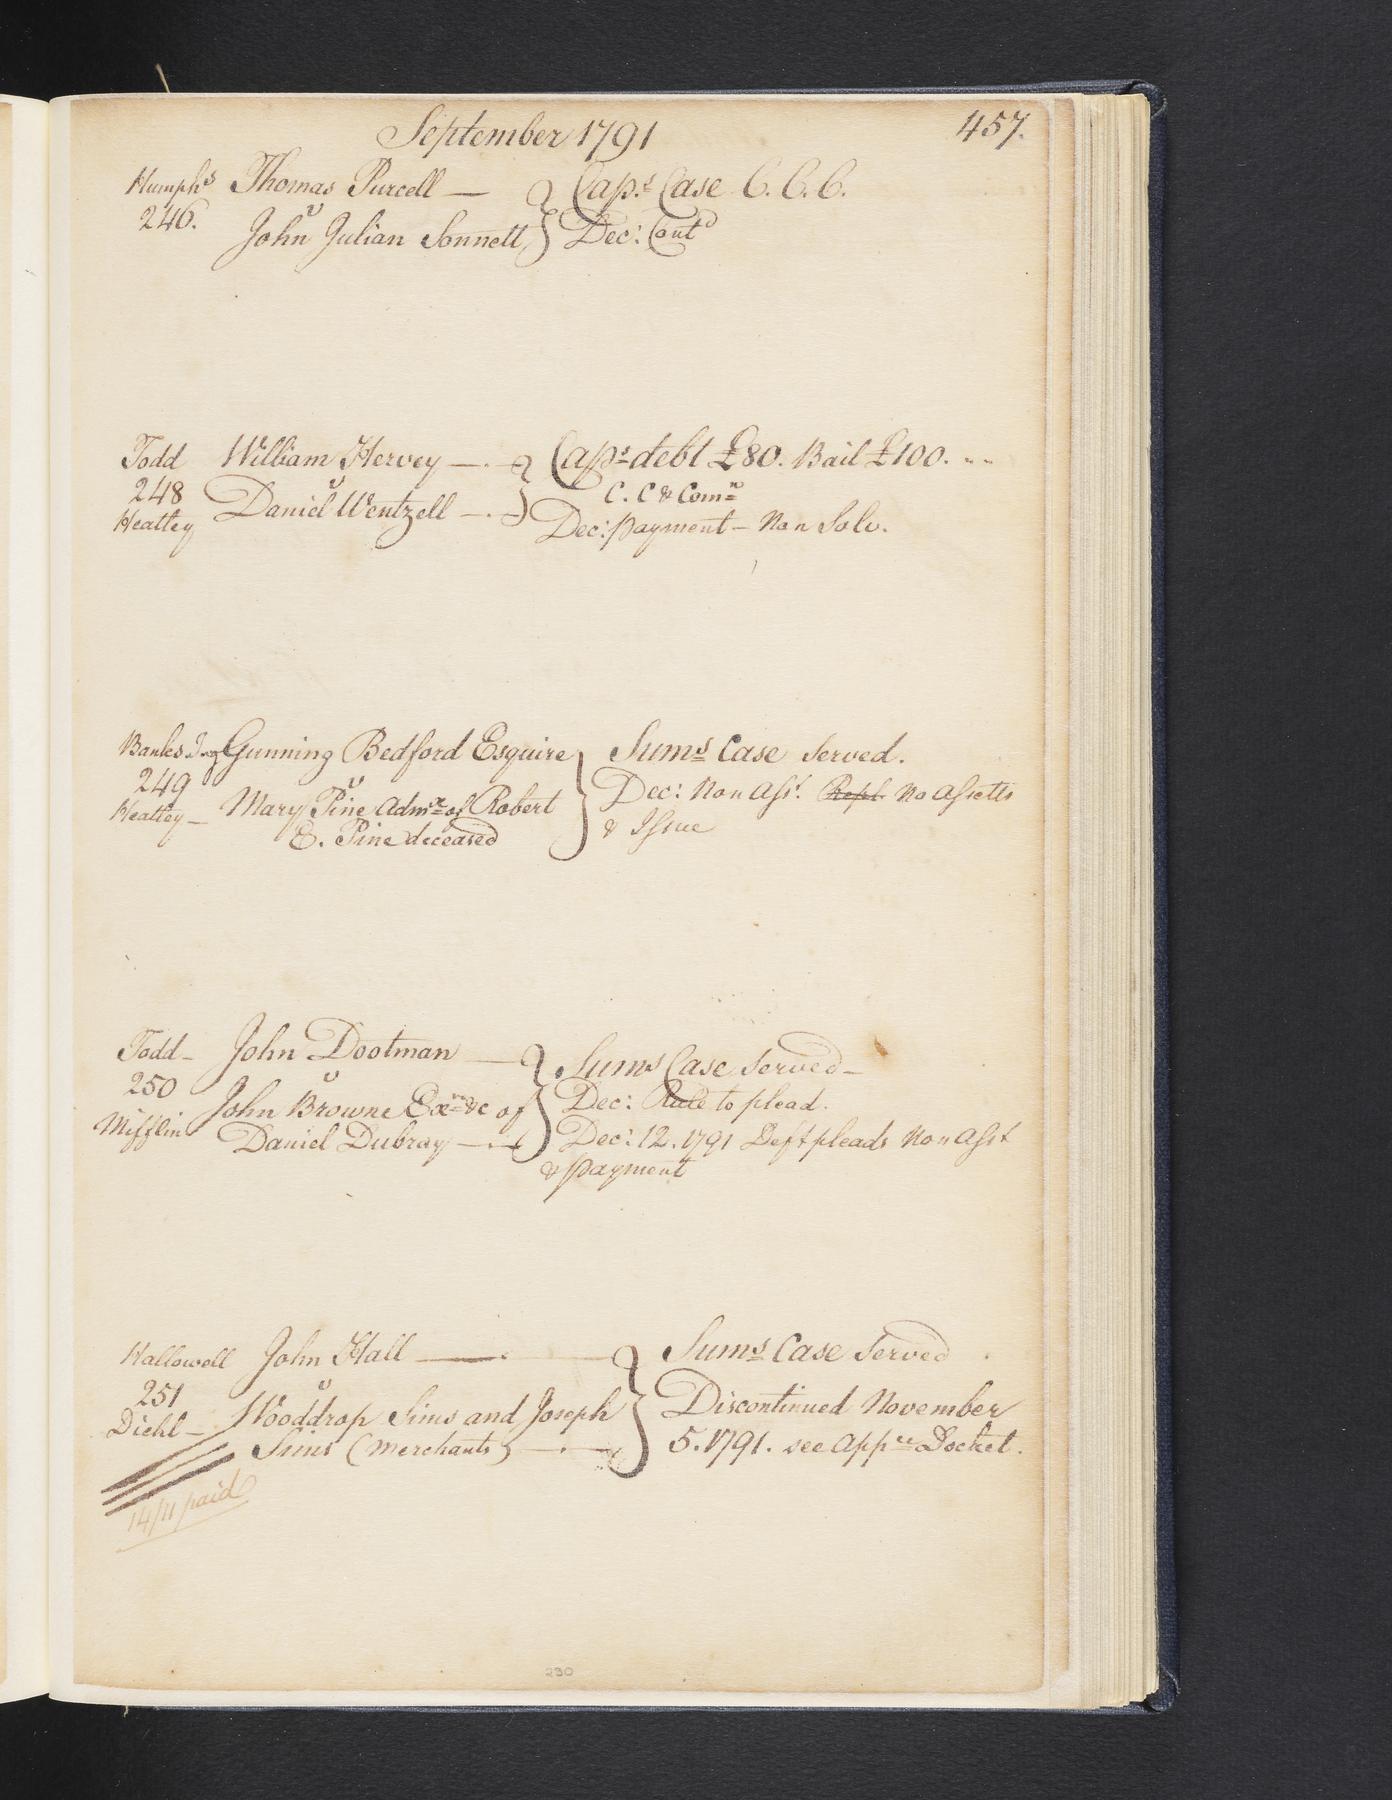 September 1791
457.
Humphs Thomas Purcell — Caps. Case C. C. C.
246. v
John Julian Sonnett Dec: Contd
Todd William Hervey — Caps debt £80. Bail £100.
248 v C. C & Comn
Heatley Daniel Wentzell — Dec: payment – Non Solv.
Banks Gunning Bedford Esquire Sums Case Served.
249 v Dec: Non Asst. Repl. No Assetts
Heatley — Mary Pine Admx of Robert & Issue
E. Pine deceased
Todd – John Dootman — Sums Case Served –
250 v
John Browne Exr &c of Dec: Rule to plead.
Mifflin Daniel Dubray — Dec: 12. 1791 Deft pleads Non Asst
& payment
Hallowell John Hall — Sums Case Served
251 v
Diehl – Wooddrop Sims and Joseph Discontinued November
Sims (Merchants) — 5. 1791. see Appce Docket.
14/11 paid
230